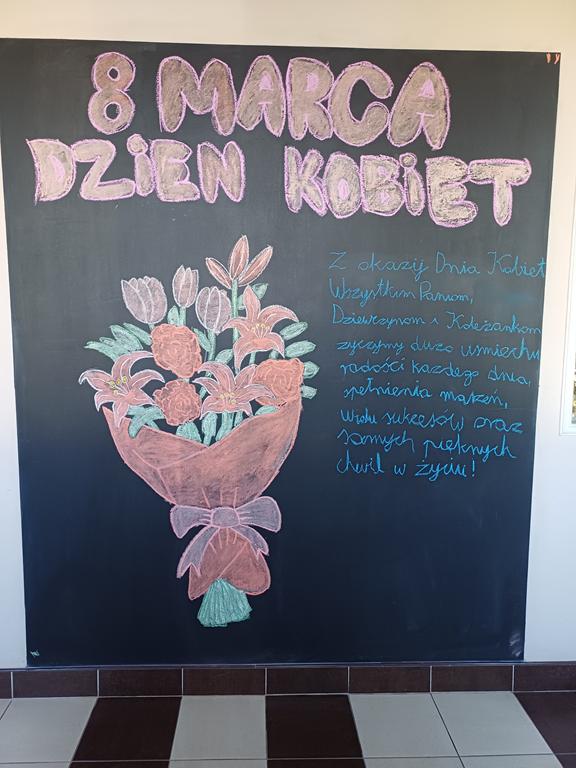 8 MARCA
DZIEŃ KOBIET
Z okazji Dnia Kobiet
Wszystkim Paniom,
Dziewczynom i Koleżankom
życzymy dużo uśmiechu
radości każdego dnia,
spełnienia marzeń,
wielu sukcesów oraz
samych pięknych
chwil w życiu!